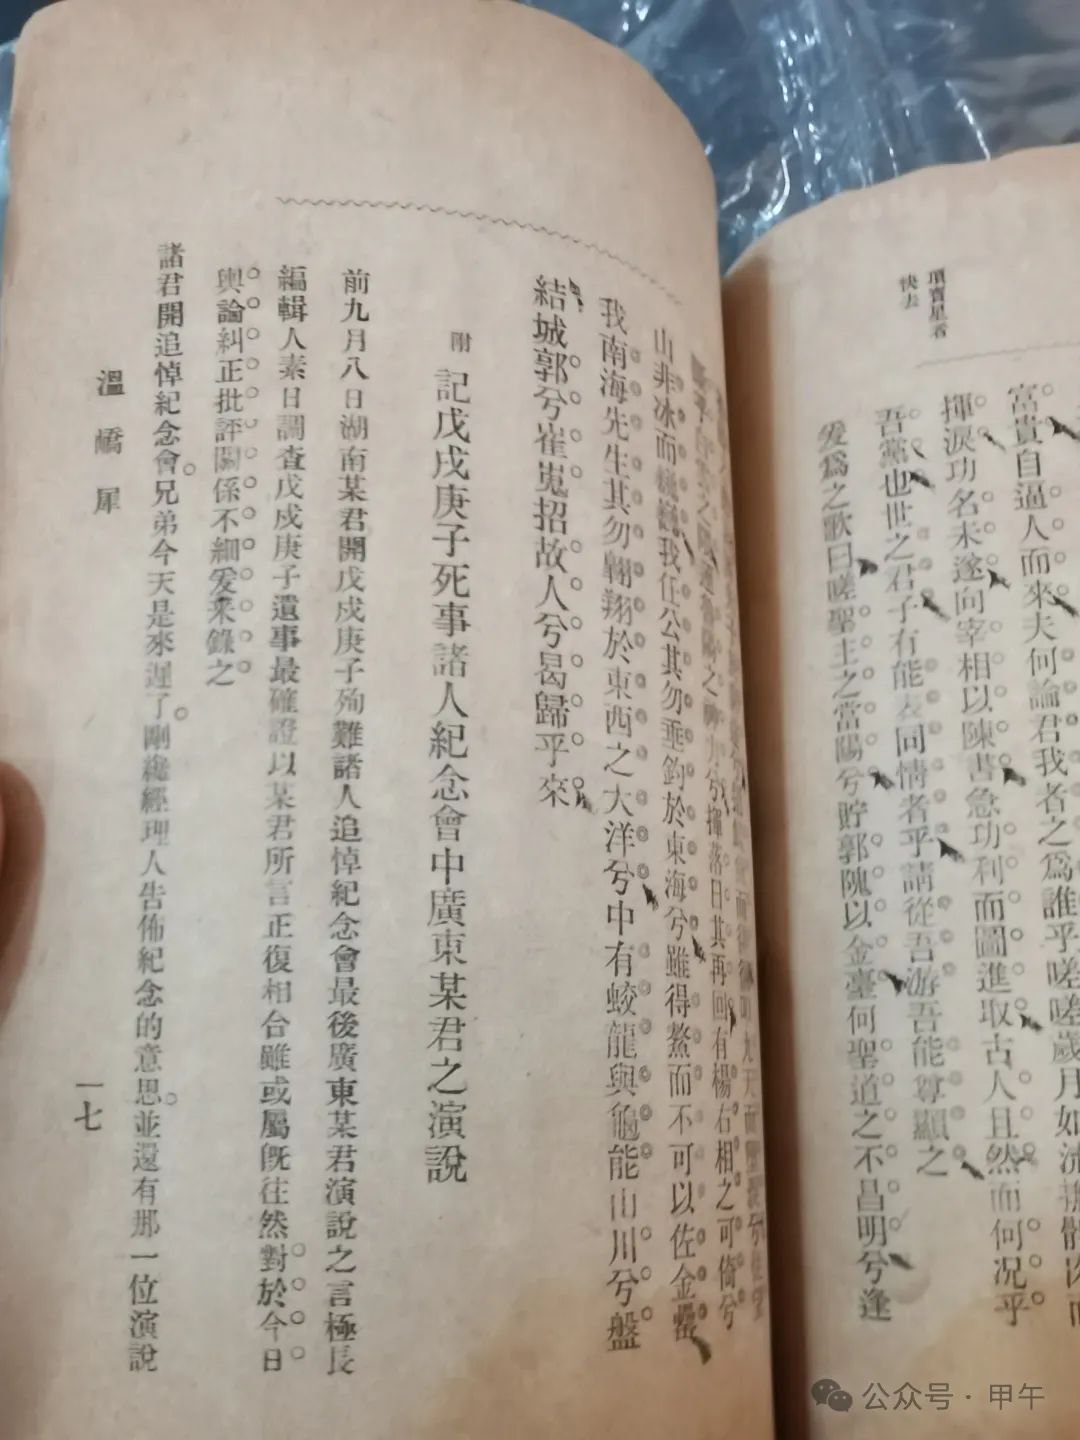 項寶星看
快去
富貴自逼人而來夫何論君我者之爲誰乎嗟嗟歲月如流
揮淚功名未遂向宰相以陳書急功利而圖進取古人且然而何况乎
吾黨也世之君子有能表同情者乎請從吾游吾能尊顯之
爰爲之歌曰嗟聖主之當陽兮貯郭隗以金臺何聖道之不昌明兮逢
揮落日其再回有楊右相之可倚兮
山非冰而巍巍我任公其勿垂鈞於東海兮雖得鰲而不可以佐金罍
我南海先生其勿翱翔於東西之大洋兮中有蛟龍與黿能山川兮盤
結城郭兮崔嵬招故人兮曷歸乎來
附 記戊戌庚子死事諸人紀念會中廣東某君之演說
前九月八日湖南某君開戊戍庚子殉難諸人追悼紀念會最後廣東某君演說之言極長
編輯人素日調查戊戍庚子遺事最確證以某君所言正復相合雖或屬旣往然對於今日
輿論糾正批評關係不細爰來錄之
諸君開追悼紀念會兄弟今天是來遲了剛纔經理人告佈紀念的意思並還有那一位演說
溫嶠犀
一七
公众号·甲午